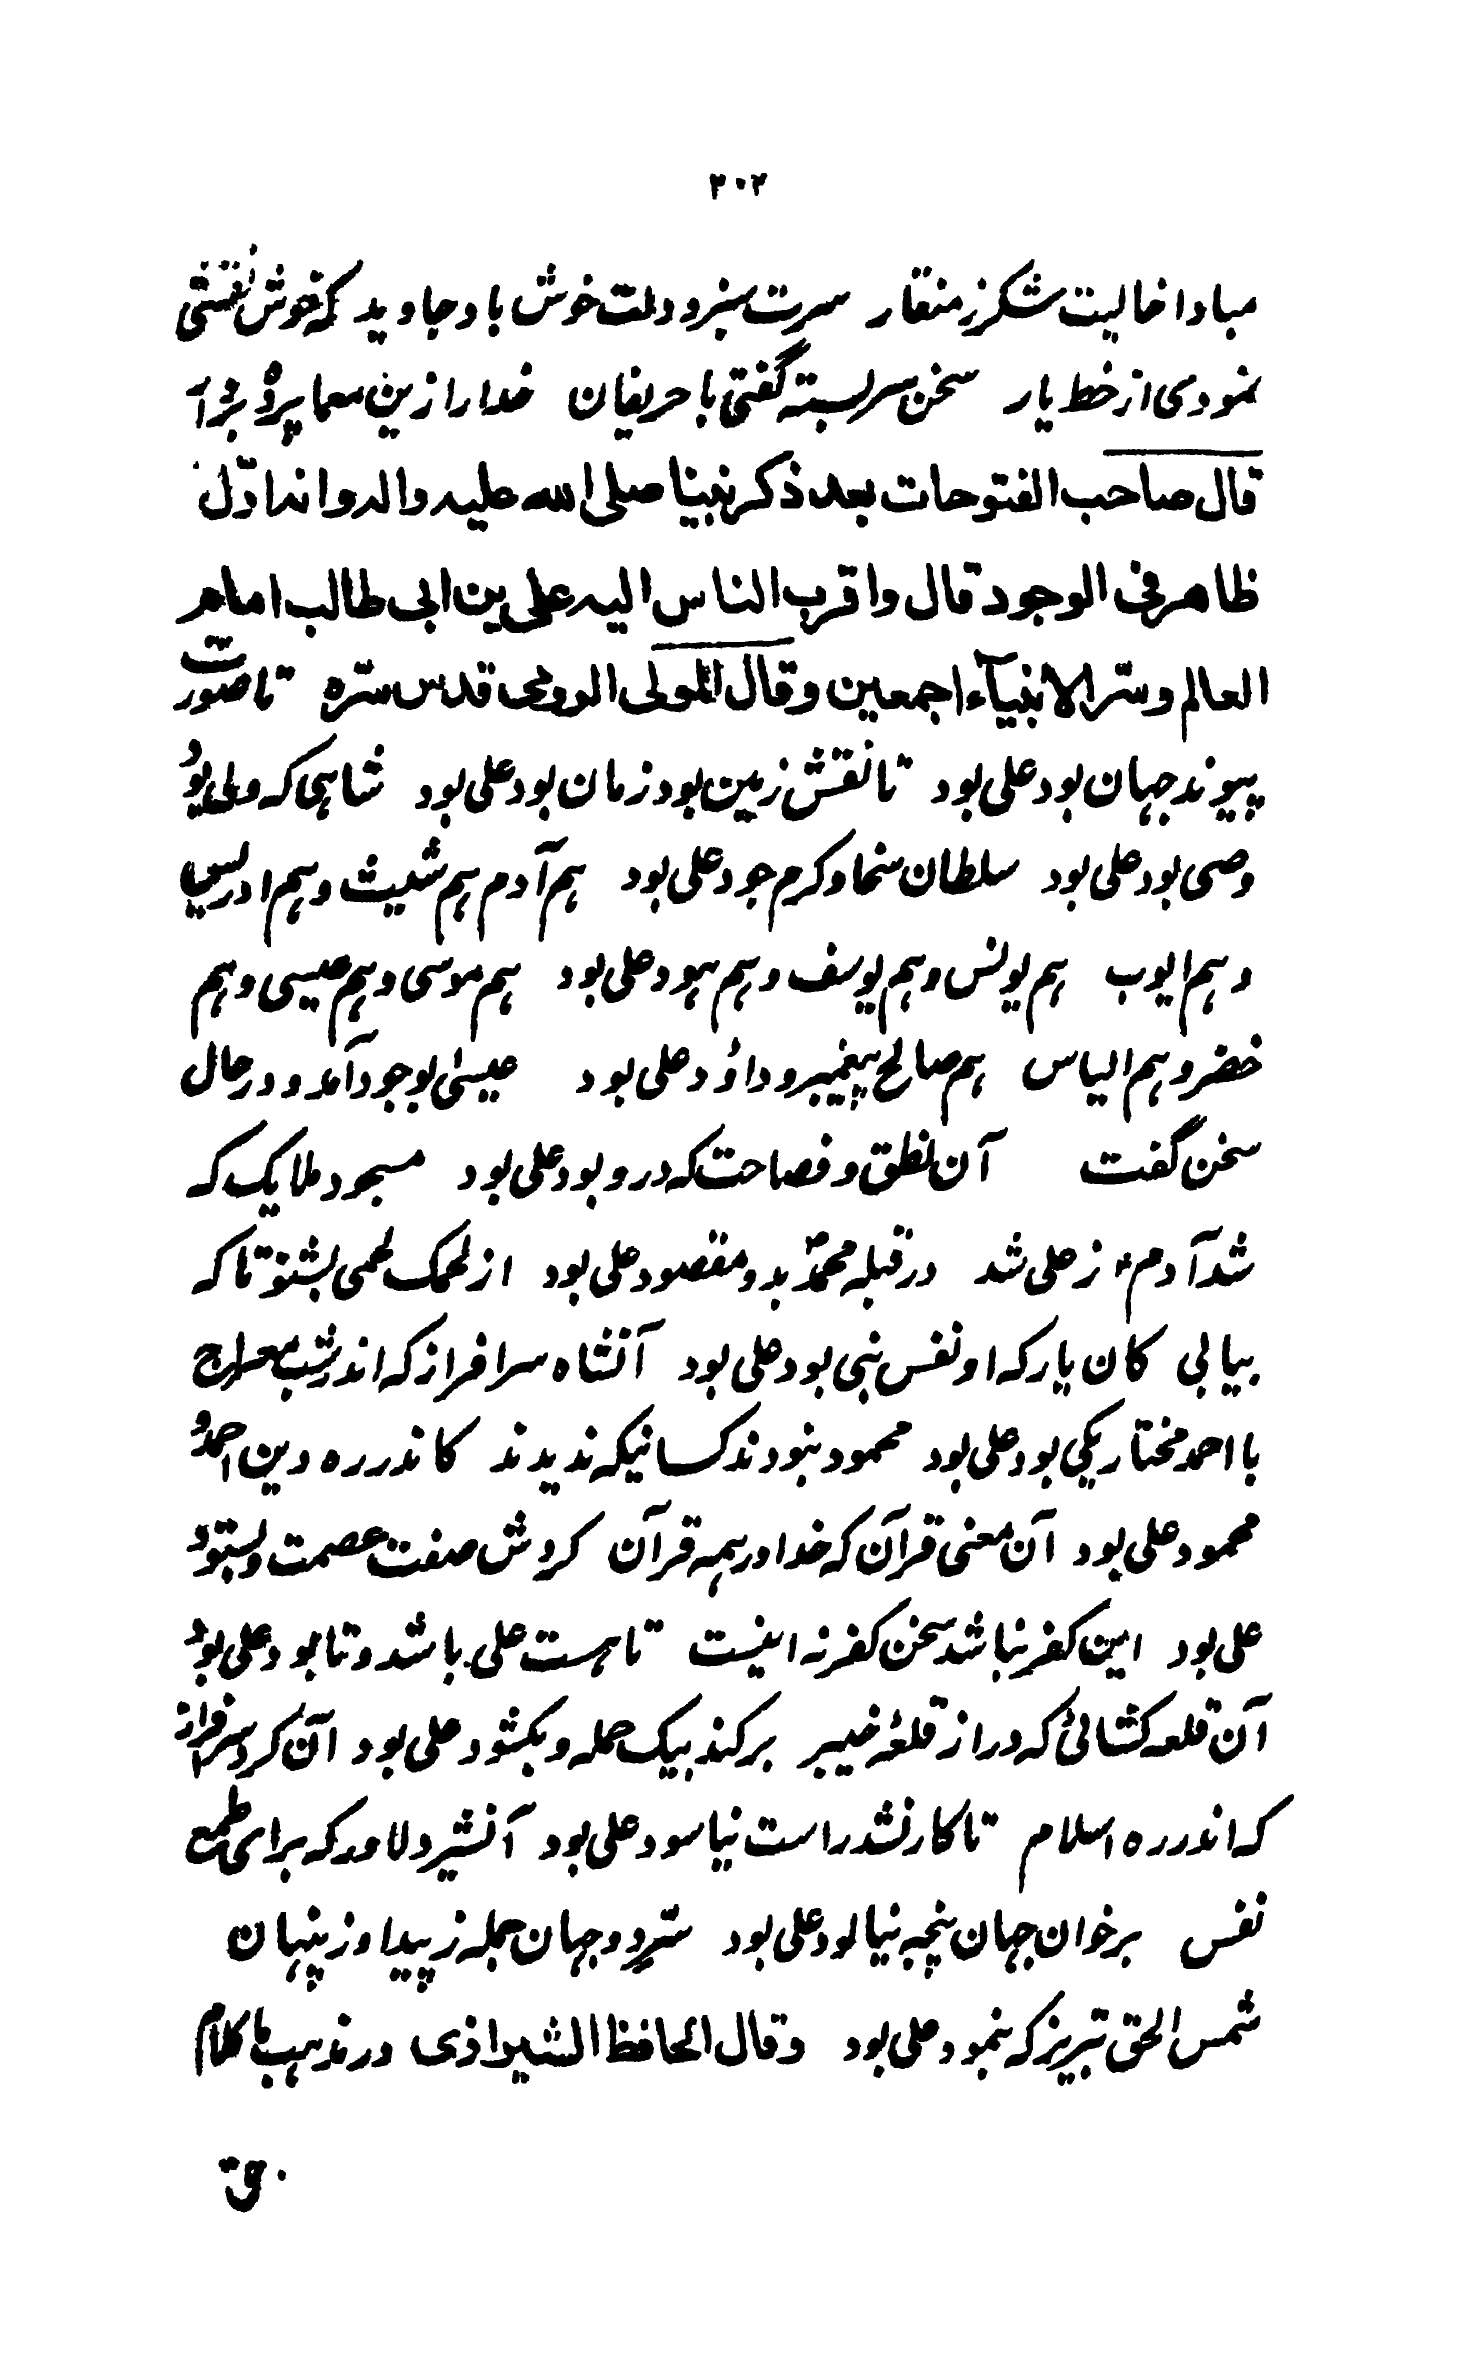 ۳۰۲
مبادا خالیت شکر ز منقار سرت سبز و دلت خوش باد جاوید که خوش نقشی
نمودی از خط یار سخن سربسته گفتی با حریفان خدا را زین معما پرده بردار
قال صاحب الفتوحات بعد ذکر نبینا صلی الله علیه واله وانه اول
ظاهر فی الوجود قال واقرب الناس الیه علی بن ابی طالب امام
العالم وسر الانبیآء اجمعین وقال المولی الرومی قدس سره تا صورت
پیوند جهان بود علی بود تا نقش زمین بود زمان بود علی بود شاهی که ولی بود
وصی بود علی بود سلطان سخا و کرم جود علی بود هم آدم هم شیث و هم ادریس
و هم ایوب هم یونس و هم یوسف و هم هود علی بود هم موسی و هم عیسی و هم
خضر و هم الیاس هم صالح پیغمبر و داؤد علی بود عیسی بوجود آمد و در حال
سخن گفت آن نطق و فصاحت که درو بود علی بود مسجود ملایک که
شد آدم ز علی شد در قبله محمد بد و مقصود علی بود از لحمک لحمی بشنو تا که
بیابی کان یار که او نفس نبی بود علی بود آنشاه سرافراز که اندر شب معراج
با احمد مختار یکی بود علی بود محمود نبودند کسانیکه ندیدند کاندر ره دین احمد و
محمود علی بود آن معنی قرآن که خدا در همه قرآن کردش صفت عصمت و بستود
علی بود این کفر نباشد سخن کفر نه اینست تا هست علی باشد و تا بود علی بود
آن قلعه کشائی که در از قلعهٔ خیبر برکند بیک حمله و بکشود علی بود آن گرد سرافراز
که اندر ره اسلام تا کار نشد راست نیاسود علی بود آنشیر دلاور که برای طمع
نفس برخوان جهان پنچه نیالود علی بود سر دو جهان جمله ز پیدا و ز پنهان
شمس الحق تبریز که بنمود علی بود وقال الحافظ الشیرازی در مذهب ما کلام